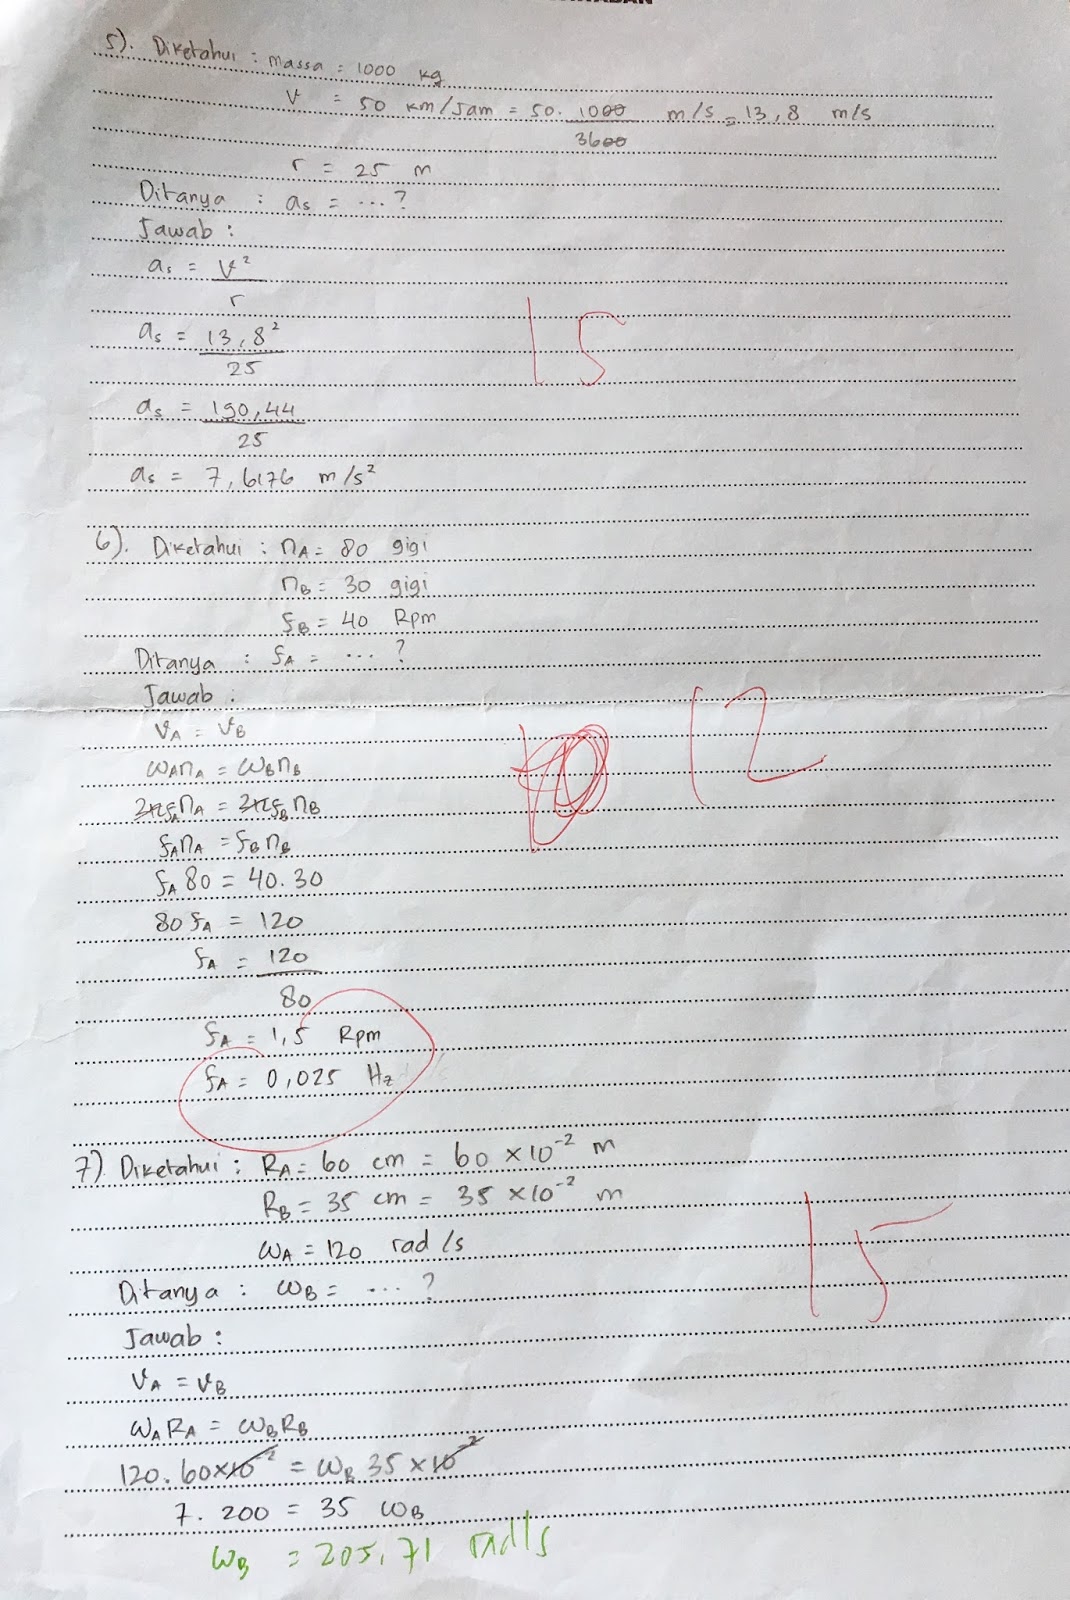 5). Diketahui : massa = 1000 kg
v = 50 km/Jam = 50. 1000 m/s = 13,8 m/s
3600
r = 25 m
Ditanya : as = ...?
Jawab :
as = v²
r
as = 13,8²
25
as = 190,44
25
as = 7,6176 m/s²
15
6). Diketahui : nA = 80 gigi
nB = 30 gigi
fB = 40 Rpm
Ditanya : fA = ... ?
Jawab :
vA = vB
ωAnA = ωBnB
2πfAnA = 2πfBnB
fAnA = fBnB
fA 80 = 40.30
80 fA = 120
fA = 120
80
fA = 1,5 Rpm
fA = 0,025 Hz
12
7) Diketahui : RA = 60 cm = 60 x10⁻² m
RB = 35 cm = 35 x10⁻² m
ωA = 120 rad/s
Ditanya : ωB = ... ?
Jawab :
vA = vB
ωA RA = ωB RB
120. 60x10⁻² = ωB 35 x10⁻²
7. 200 = 35 ωB
ωB = 205,71 rad/s
15